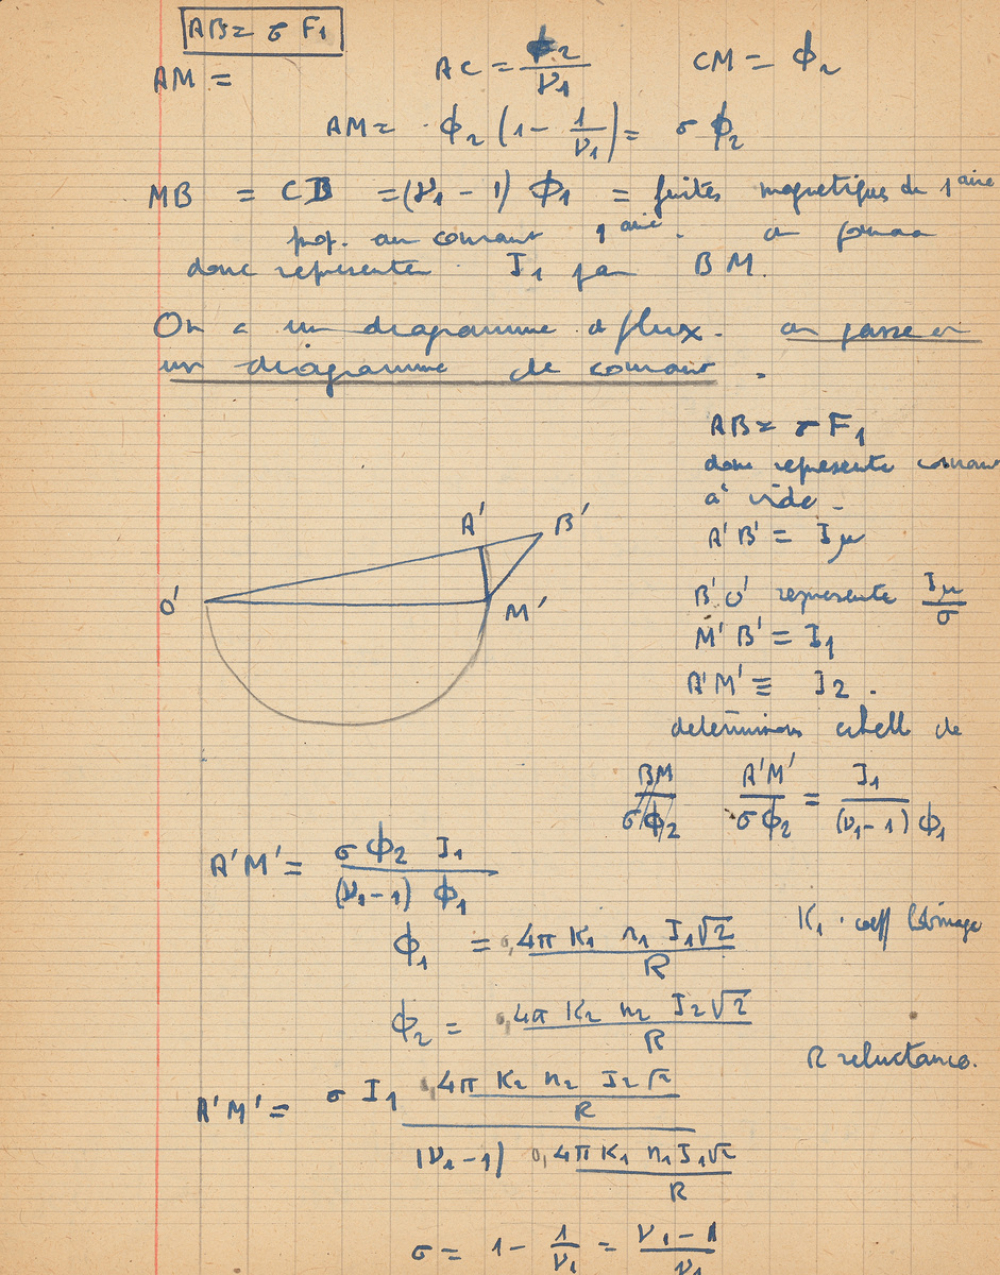 AB = σ F₁
AM =
AC = ϕ₂/ν₁
CM = ϕ₂
AM = ϕ₂ (1 - 1/ν₁) = σ ϕ₂
MB = CB = (ν₁ - 1) ϕ₁ = fuites magnetiques du 1aire
prop. au courant 1aire. on pourra
donc representer I₁ par BM.
On a un diagramme de flux. on passe à
un diagramme de courant.
AB = σ F₁
donc represente courant
à vide.
A'B' = Iμ
B'O' represente Iμ/σ
M'B' = I₁
A'M' ≡ I₂.
A'
B'
O'
M'
determinons echelle de
BM/σϕ₂ A'M'/σϕ₂ = I₁/(ν₁-1) ϕ₁
A'M' = σ ϕ₂ I₁/(ν₁-1) ϕ₁
K₁ . coeff bobinage
ϕ₁ = 0,4π K₁ n₁ I₁√2/R
ϕ₂ = 0,4π K₂ n₂ I₂√2/R
R reluctance.
A'M' = σ I₁ 0,4π K₂ n₂ I₂√2/R
(ν₁-1) 0,4π K₁ n₁ I₁√2/R
σ = 1 - 1/ν₁ = ν₁ - 1/ν₁